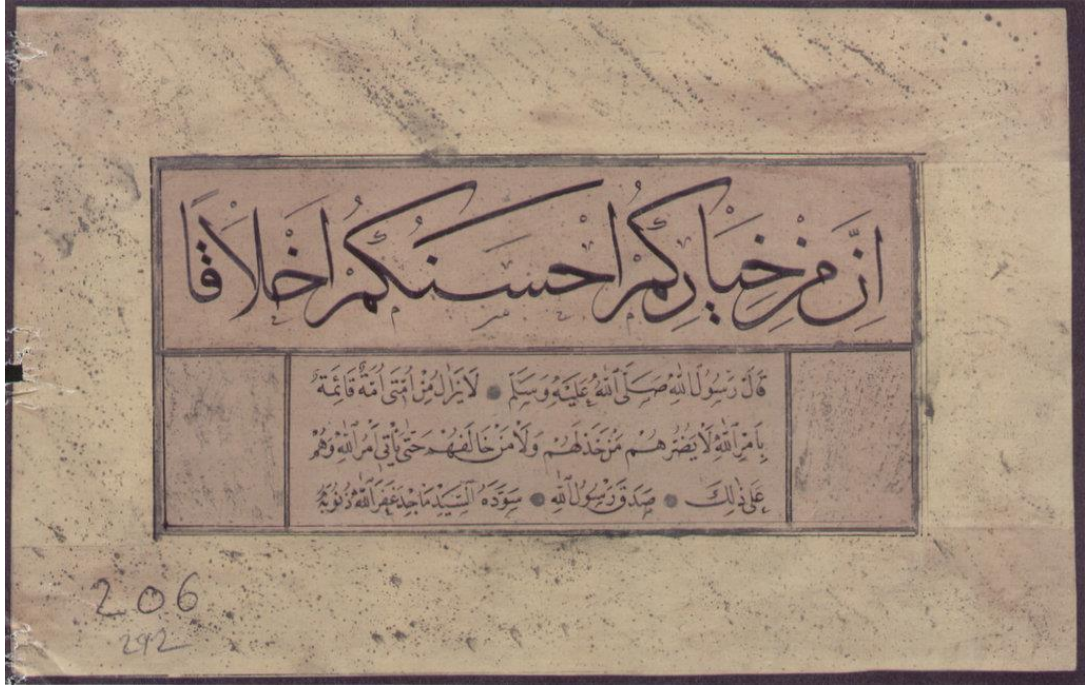 اِنَّ مِنْ خِيَارِكُمْ اَحْسَنَكُمْ اَخْلَاقًا
قَالَ رَسُولُ اللّٰهِ صَلَّى اللّٰهُ عَلَيْهِ وَسَلَّمَ لَا يَزَالُ مِنْ اُمَّتِى اُمَّةٌ قَائِمَةٌ
بِاَمْرِ اللّٰهِ لَا يَضُرُّهُمْ مَنْ خَذَلَهُمْ وَلَا مَنْ خَالَفَهُمْ حَتّٰى يَأْتِىَ اَمْرُ اللّٰهِ وَهُمْ
عَلٰى ذٰلِكَ صَدَقَ رَسُولُ اللّٰهِ سَوَّدَهُ السَّيِّدْ مَاجِدْ غَفَرَ اللّٰهُ ذُنُوبَهُ
206
292